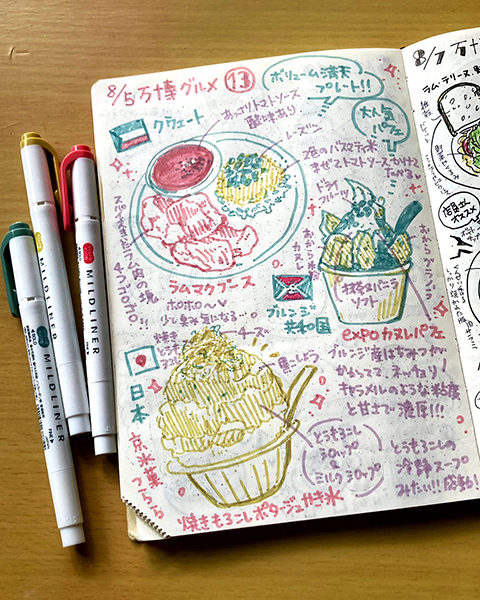 8/5 万十専グルメ 13
ボリューム満天
プレート!!
クウェート
あっさりトマトソース
酸味あり
レーズン
大人気
パフェ
2色のバスマティ米
ませてトマトソースかけて
たべる
ドライ
フルーツ
ラムマクブース
ホロホロ
少し臭み気になる…
!!
抹茶×バニラ
ソフト
ブルンジ
共和国
expoカヌレパフェ
チーズ
焼き
日本
黒こしょう
ブルンジ産はちみつが
かかってて、ネッチョリ
キャラメルのような粘度
と甘さで濃厚!!!
とうもろこし
シロップ
&
ミルクシロップ
とうもろこしの
冷静スープ
みたい!!
京氷菓つらら
焼きもろこしポタージュかき氷
MILDLINER
MILDLINER
MILDLINER
8/7 万十
ラム・テリーヌ
店員さん
オススメ